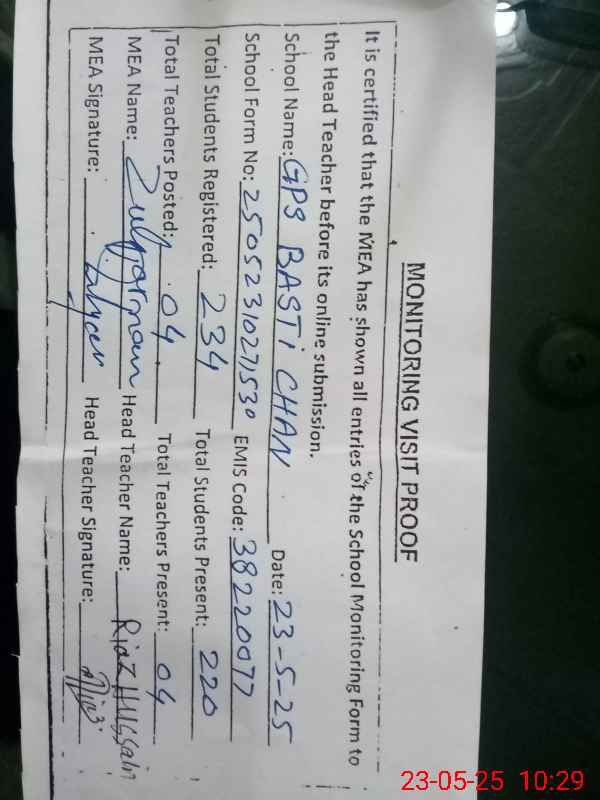 MONITORING VISIT PROOF
It is certified that the MEA has shown all entries of the School Monitoring Form to
the Head Teacher before its online submission.
School Name: GPS BASTI CHAN Date: 23-5-25
School Form No: EMIS Code: 38220077
Total Students Registered: 234 Total Students Present: 220
Total Teachers Posted: 04 Total Teachers Present: 04
MEA Name: Head Teacher Name: Riaz Hussain
MEA Signature: Head Teacher Signature:
23-05-25 10:29